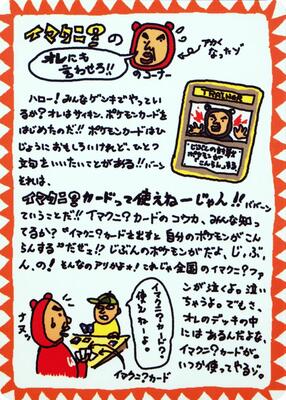 イマクニ?の
オレにも
言わせろ!!
のコーナー
アカくなったゾ
ハロー!みんなゲンキでやってい
るか?オレはサイキン、ポモンカードを
はじめたのだ!!ポケモンカードはひ
じょうにおもしろいけれど、ひとつ
文句をいいたいことがある!!ババーン
それは、
イマクニ?カードって使えねーじゃん!!ババババーン
ていうことだ!!イマクニ?カードのコウカ、みんな知っ
てるか?“イマクニ?カードを出すと自分のポケモンがこ
んらんする”だぜェ!?じぶんのポケモンがだよ、じ、ぶ、
ん、の!そんなのアリかよォ!これじゃ全国のイマクニ?ファ
ンが泣くよ。泣い
ちゃうよ。でもさ、
オレのデッキの中
にはあるんだよな、
イマクニ?カードが。
いつか使ってやるゾ。
TRAINER
じぶんの対戦
ポケモンが
こんらんする
イマクニ?カード?
使えねーよ。
ナヌッ
イマクニ?カード